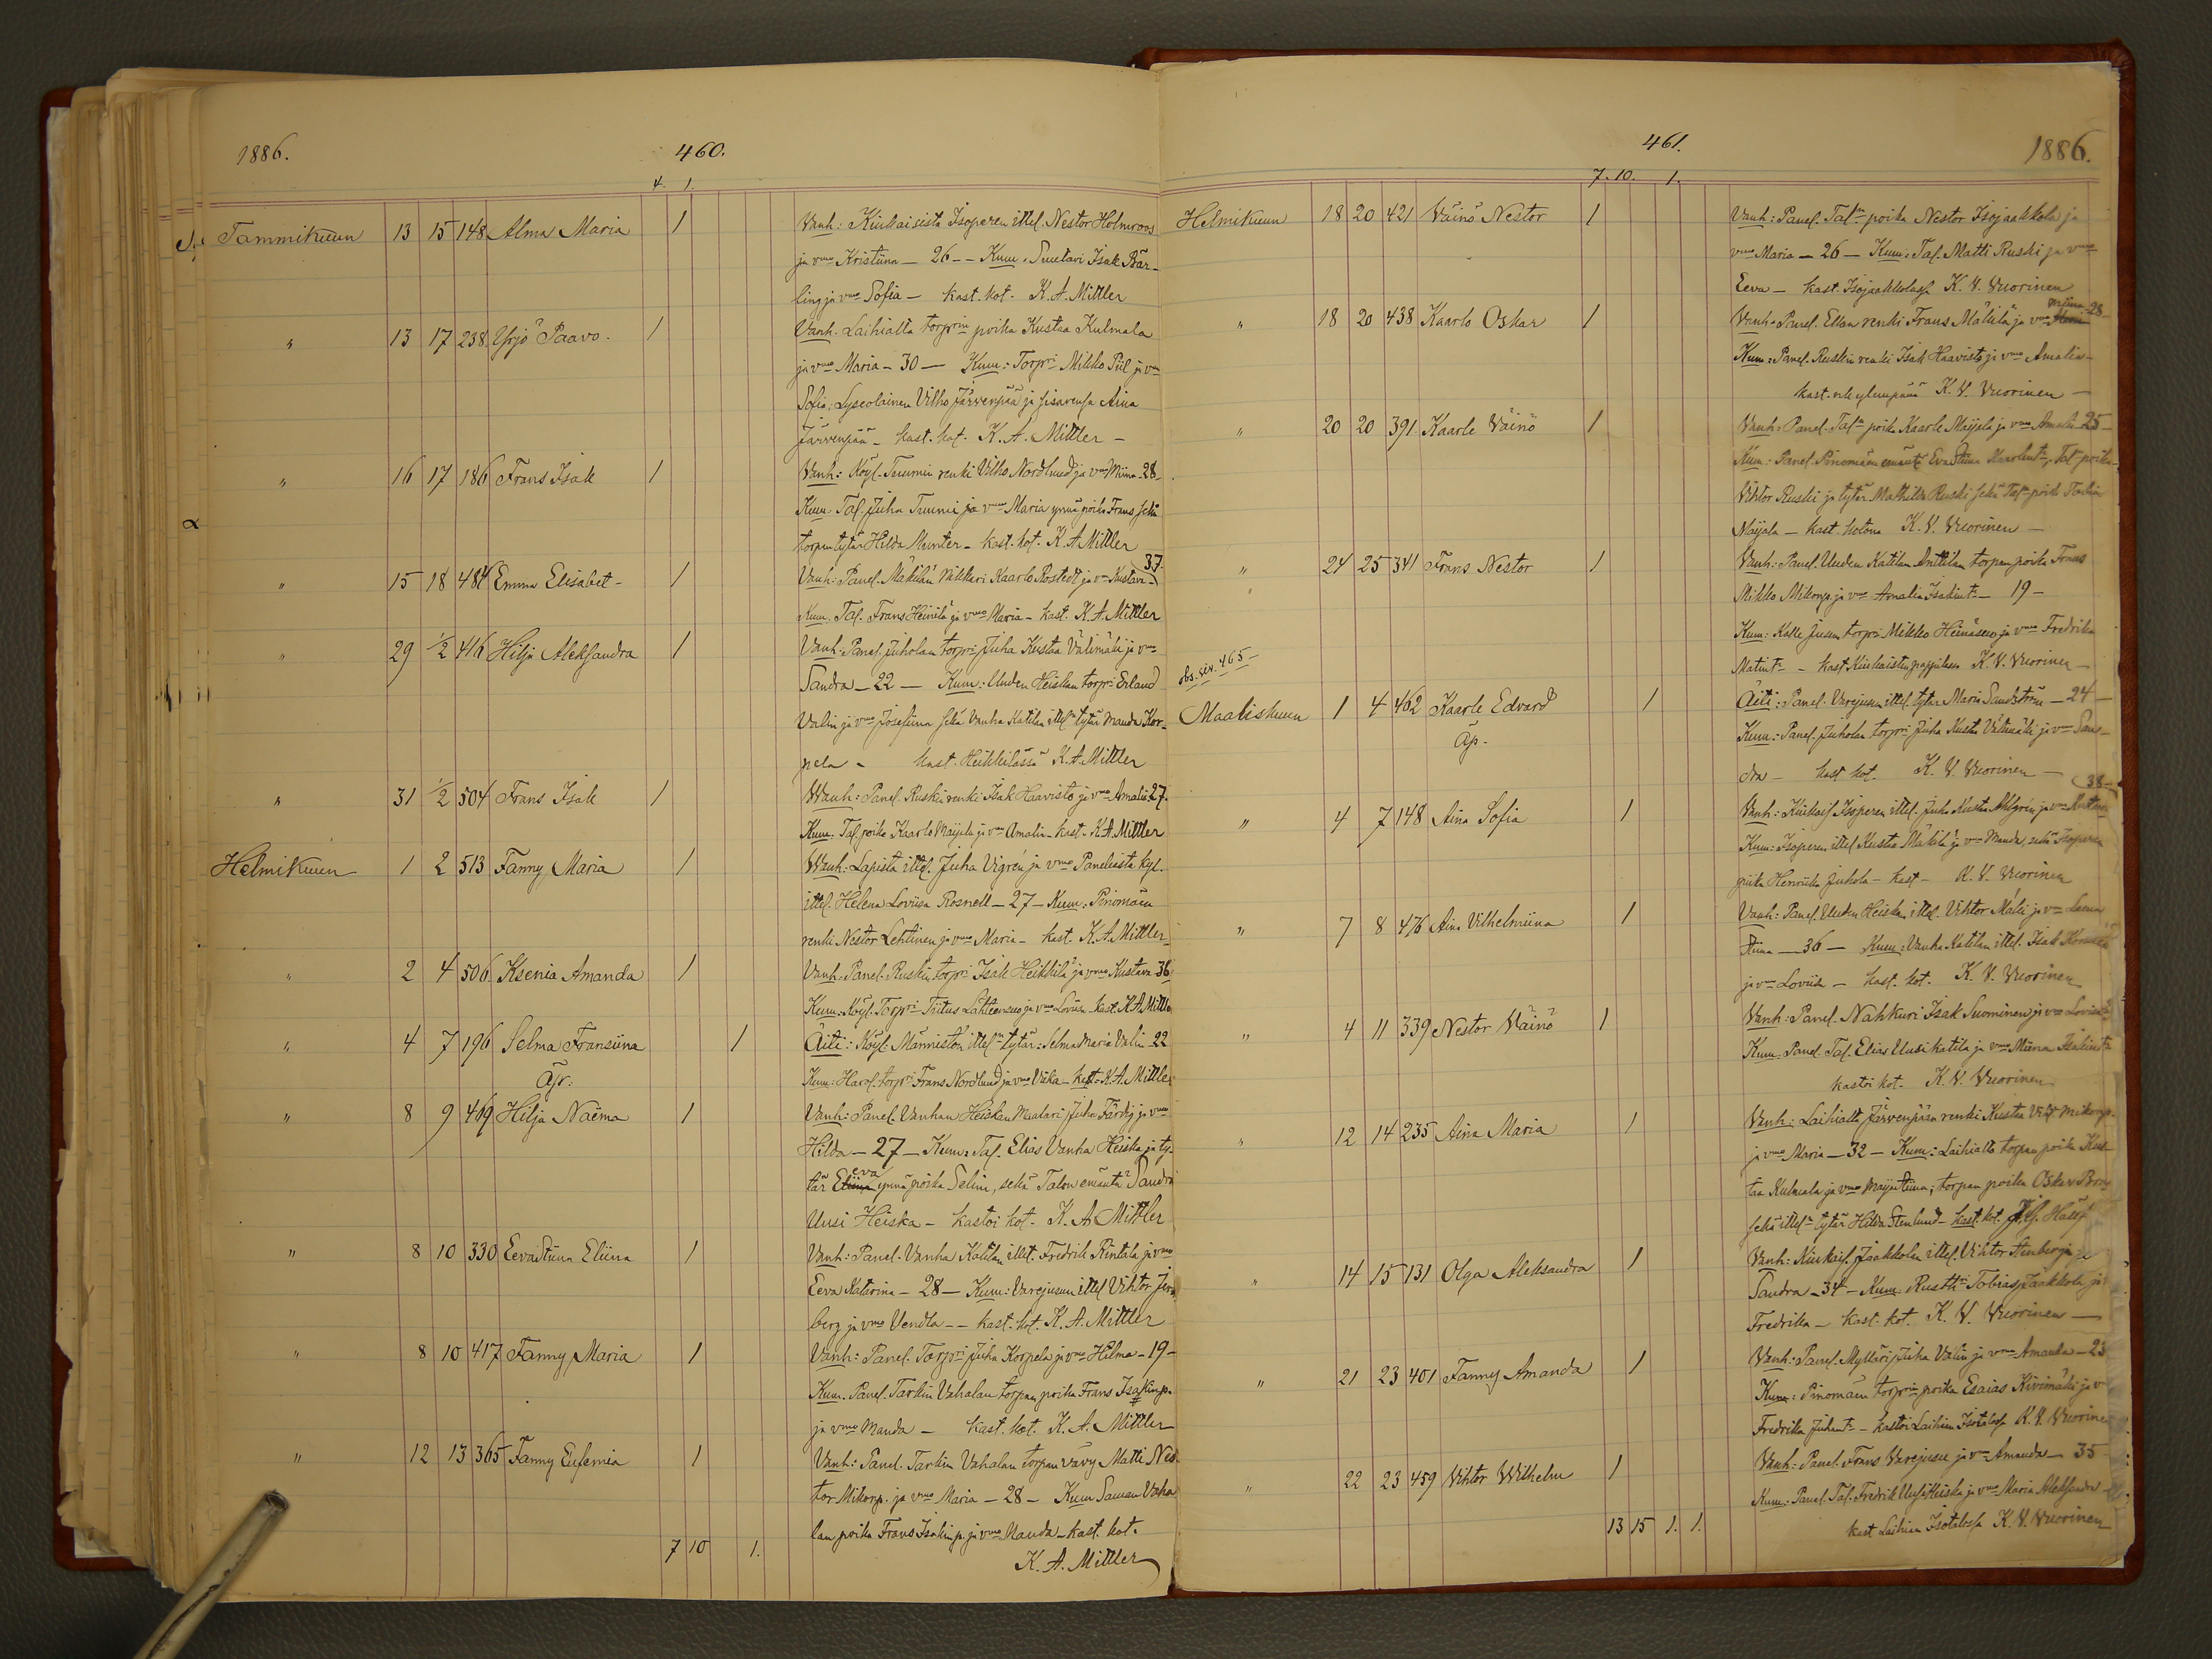 1886.
460.
4. 1.
Tammikuun 13 15 148 Alma Maria 1 Vanh: Kiukaisista Isoperen ittel. Nestor Holmroos
ja vmo Kristiina - 26 - - Kum. Isak Bär-
ling ja vmo Sofia - kast. kot. K. A. Mittler
" 13 17 238 Yrjö Paavo. 1 Vanh. Laihialta torprin poika Kustaa Kulmala
ja vmo Maria - 30 - Kum: Torpri Mikko Piil ja vm
Sofia, Lyseolainen Vilho Järvenpää ja sisarensa Aina
Järvenpää - kast. kot. K. A. Mittler -
" 16 17 186 Frans Isak 1 Vanh: Köyl. Tuumin renki Vilho Nordlund ja vmo Miina - 28 -
Kum. Tal. Juha Tuumi ja vmo Maria ynnä poika Frans sekä
torpan tytär Hilda Munter - kast. kot. K. A. Mittler
" 15 18 484 Emma Elisabet - 1 Vanh: Panel. Mäkilän Nikkari Kaarlo Rostedt ja vm Kustava - 37.
Kum. Tal. Frans Heinilä ja vmo Maria - kast. K. A. Mittler
" 29 1/2 416 Hilja Aleksandra 1 Vanh: Panel. Juholan torpri Juha Kustaa Välimäki ja vmo
Sandra - 22 - Kum: Uuden Heiskan torpri Erland
Valin ja vmo Josefiina sekä Vanha Katilan ittel. tytär Manda Kor-
pela - kast. Heikkilässä K. A. Mittler
" 31 1/2 504 Frans Isak 1 Wanh: Panel. Ruskin renki Isak Haavisto ja vmo Amalia 27.
Kum. Tal. poika Kaarlo Maijala ja vm Amalia - kast. K. A. Mittler
Helmikuun 1 2 513 Fanny Maria 1 Wanh: Lapista ittel. Juha Vigren ja vmo Paneliasta kyl.
ittel. Helena Loviisa Rosnell - 27 - Kum: Pinomäen
renki Nestor Lehtinen ja vmo Maria - kast. K. A. Mittler -
" 2 4 506 Ksenia Amanda 1 Vanh. Panel. Ruskin torpri Isak Heikkilä ja vmo Kustava 36
Kum. Köyl. Torpri Tiitus Lähteensuo ja vmo Loviisa - kast. K. A. Mittler
" 4 7 196 Selma Fransiina 1 Äiti: Köyl. Männistön ittel. tytär: Selma Maria Valin - 22
Äp: Kum: Harol. torpri Frans Nordlund ja vmo Viika - kast. K. A. Mittler
" 8 9 469 Hilja Naëma 1 Vanh: Panel. Vanhan Heiskan Maalari Juha Färdig ja vmo
Hilda - 27 - Kum: Tal. Elias Vanha Heiska ja ty-
tär Eeva ynnä poika Selim, sekä Talon emäntä Sandra
Uusi Heiska - kastoi kot. K. A. Mittler
" 8 10 330 Eevastiina Eliina 1 Vanh: Panel. Vanha Katilan ittel. Fredrik Rintala ja vmo
Eeva Katarina - 28 - Kum: Varejusun ittel Vihtor
berg ja vmo Vendla - - kast. kot. K. A. Mittler
" 8 10 417 Fanny Maria 1 Vanh: Panel. Torpri Juha Korpela ja vmo Hilma - 19 -
Kum. Panel. Tarkin Vahalan torpan poika Frans Isakinp.
ja vmo Manda - kast. kot. K. A. Mittler
" 12 13 365 Fanny Eufemia 1 Vanh: Panel. Tarkin Vahalan torpan vävy Matti Nes-
tor Mikonp. ja vmo Maria - 28 - Kum Saman Vaha
lan poika Frans Isakinp. ja vmo Manda - kast. kot.
7 10 1. K. A. Mittler
461.
1886.
7. 10. 1.
Helmikuun 18 20 421 Väinö Nestor 1 Vanh: Panel. Taln poika Nestor Isojaakkola ja
vmo Maria - 26 - Kum: Tal. Matti Ruski ja vmo
Eeva - kast. Isojaakkolassa K. V. Vuorinen
" 18 20 438 Kaarlo Oskar 1 Vanh. Panel. Ellan renki Frans Mäkilä ja vmo Miina 28 -
Kum: Panel. Ruskin renki Isak Haavisto ja vmo Amalia -
kast. K. V. Vuorinen -
" 20 20 391 Kaarle Väinö 1 Vanh: Panel. Taln poika Kaarle Maijala ja vmo Amalia 25 -
Kum: Panel. Pinomäen emäntä Evastiina Kaarlent. Taln poika
Vihtor Ruski ja tytär Mathilda Ruski sekä Taln poika Tobias
Maijala - kast. kotona K. V. Vuorinen -
" 24 25 341 Frans Nestor 1 Vanh: Panel. Uuden Katilan Anttilan torpan poika Frans
Mikko Mikonp. ja vmo Amalia Isakint. - 19 -
Kum: Kalle Jusun torpri Mikko Heinäsuo ja vmo Fredrika
Matint. - kast. Kiukaisten pappilassa K. V. Vuorinen -
obs. siv. 465 -
Maaliskuun 1 4 462 Kaarle Edvard 1 Äiti: Panel. Varejusun ittel. tytär Maria Sandström - 24 -
Äp. Kum: Panel. Juholan torpri Juha Kustaa Välimäki ja vmo San-
dra - kast kot. K. V. Vuorinen -
" 4 7 148 Aina Sofia 1 Vanh: Kiukais. Isoperen ittel. Juha Kustaa Ahlgren ja vmo 38 -
Kum: Isoperen ittel Kustaa Mäkilä ja vmo Manda, sekä Isoperen
piika Henriika Juhola - kast - K. V. Vuorinen
" 7 8 476 Aina Vilhelmiina 1 Vanh: Panel. Uuden Heiskan ittel. Vihtor Mäki ja vm Leena
Stiina - 36 - Kum: Vanha Katilan ittel. Isak
ja vm Loviisa - kast. kot. K. V. Vuorinen
" 4 11 339 Nestor Väinö 1 Vanh: Panel. Nahkuri Isak Suominen ja vmo Loviisa
Kum. Panel. Tal. Elias Uusikatila ja vmo Miina Isakint.
kastoi kot. K. V. Vuorinen
" 12 14 235 Aina Maria 1 Vanh: Laihialta Järvenpään renki Kustaa Vilh. Mikonp.
ja vmo Maria - 32 - Kum: Laihialta torpan poika Kus-
taa Kulmala ja vmo Maijastiina; torpan poika Oskar
sekä ittel. tytär Hilda Stenlund - kast. kot.
" 14 15 131 Olga Aleksandra 1 Vanh: Kiukais. Jaakkolan ittel. Vihtor Stenberg ja
Sandra - 34 - Kum. Rustit. Tobias Jaakkola ja
Fredrika - kast. kot. K. V. Vuorinen -
" 21 23 401 Fanny Amanda 1 Vanh: Panel. Mylläri Juha Valin ja vmo Amanda - 23
Kum: Pinomäen torprin poika Esaias Kivimäki ja v
Fredrika Juhant. - kastoi Laihian Isotalossa K. V. Vuorinen
" 22 23 459 Vihtor Wilhelm 1 Vanh: Panel. Frans Varejusu ja vm Amanda - 35
Kum: Panel. Tal. Fredrik Uusi Heiska ja vmo Maria Aleksandra -
13 15 1. 1. kast Laihian Isotalossa K. V. Vuorinen